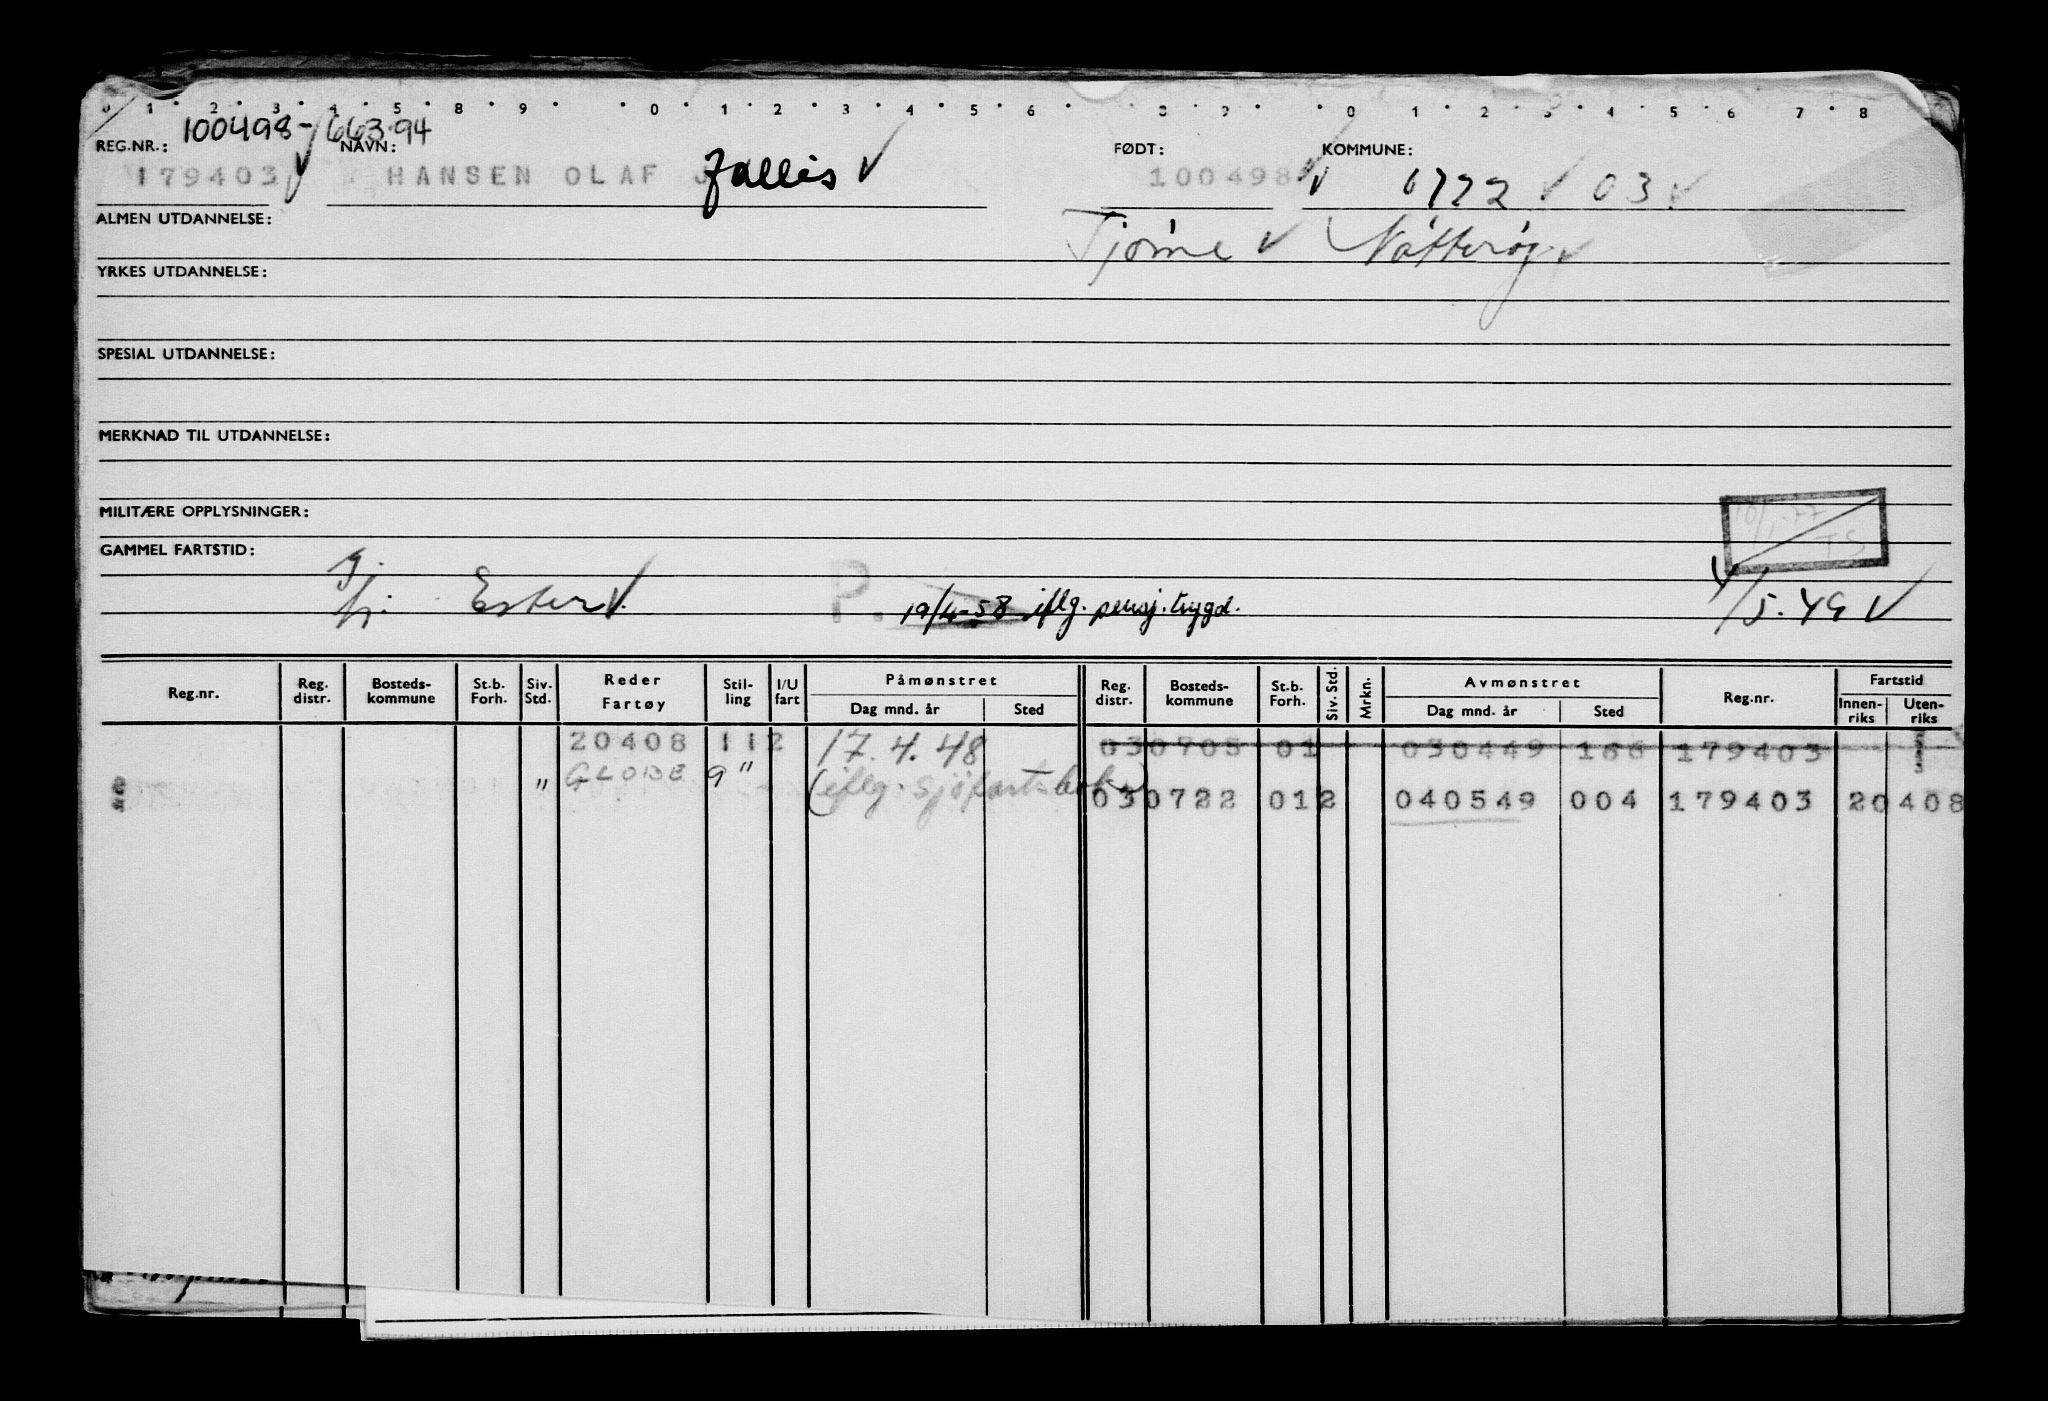 0 1 2 3 4 5 8 9 0 1 2 3 4 5 6 8 9 0 1 2 3 4 5 6 7 8
100498-66394
REG.NR.: NAVN: FØDT: KOMMUNE:
179403 HANSEN OLAF J 100498 0722 03
ALMEN UTDANNELSE: Tjøme Nøtterøy
YRKES UTDANNELSE:
SPESIAL UTDANNELSE:
MERKNAD TIL UTDANNELSE:
MILITÆRE OPPLYSNINGER: 10/1-77
TS
GAMMEL FARTSTID:
g.
Ester P. 19/4-58 iflg. pensj. trygd. 4/5.49
Reg.nr. Reg. distr. Bosteds-kommune St.b. Forh. Siv. Std. Reder Fartøy Stil-ling I/U fart Påmønstret Dag mnd. år Sted Reg. distr. Bosteds-kommune St.b. Forh. Siv. Std. Mrkn. Avmønstret Dag mnd. år Sted Reg.nr. Fartstid Innen-riks Uten-riks
20408 112 17.4.48 030705 01 030449 166 179403
" GLOBE 9 " (iflg. sjøfartsbok)
030722 012 040549 004 179403 20408